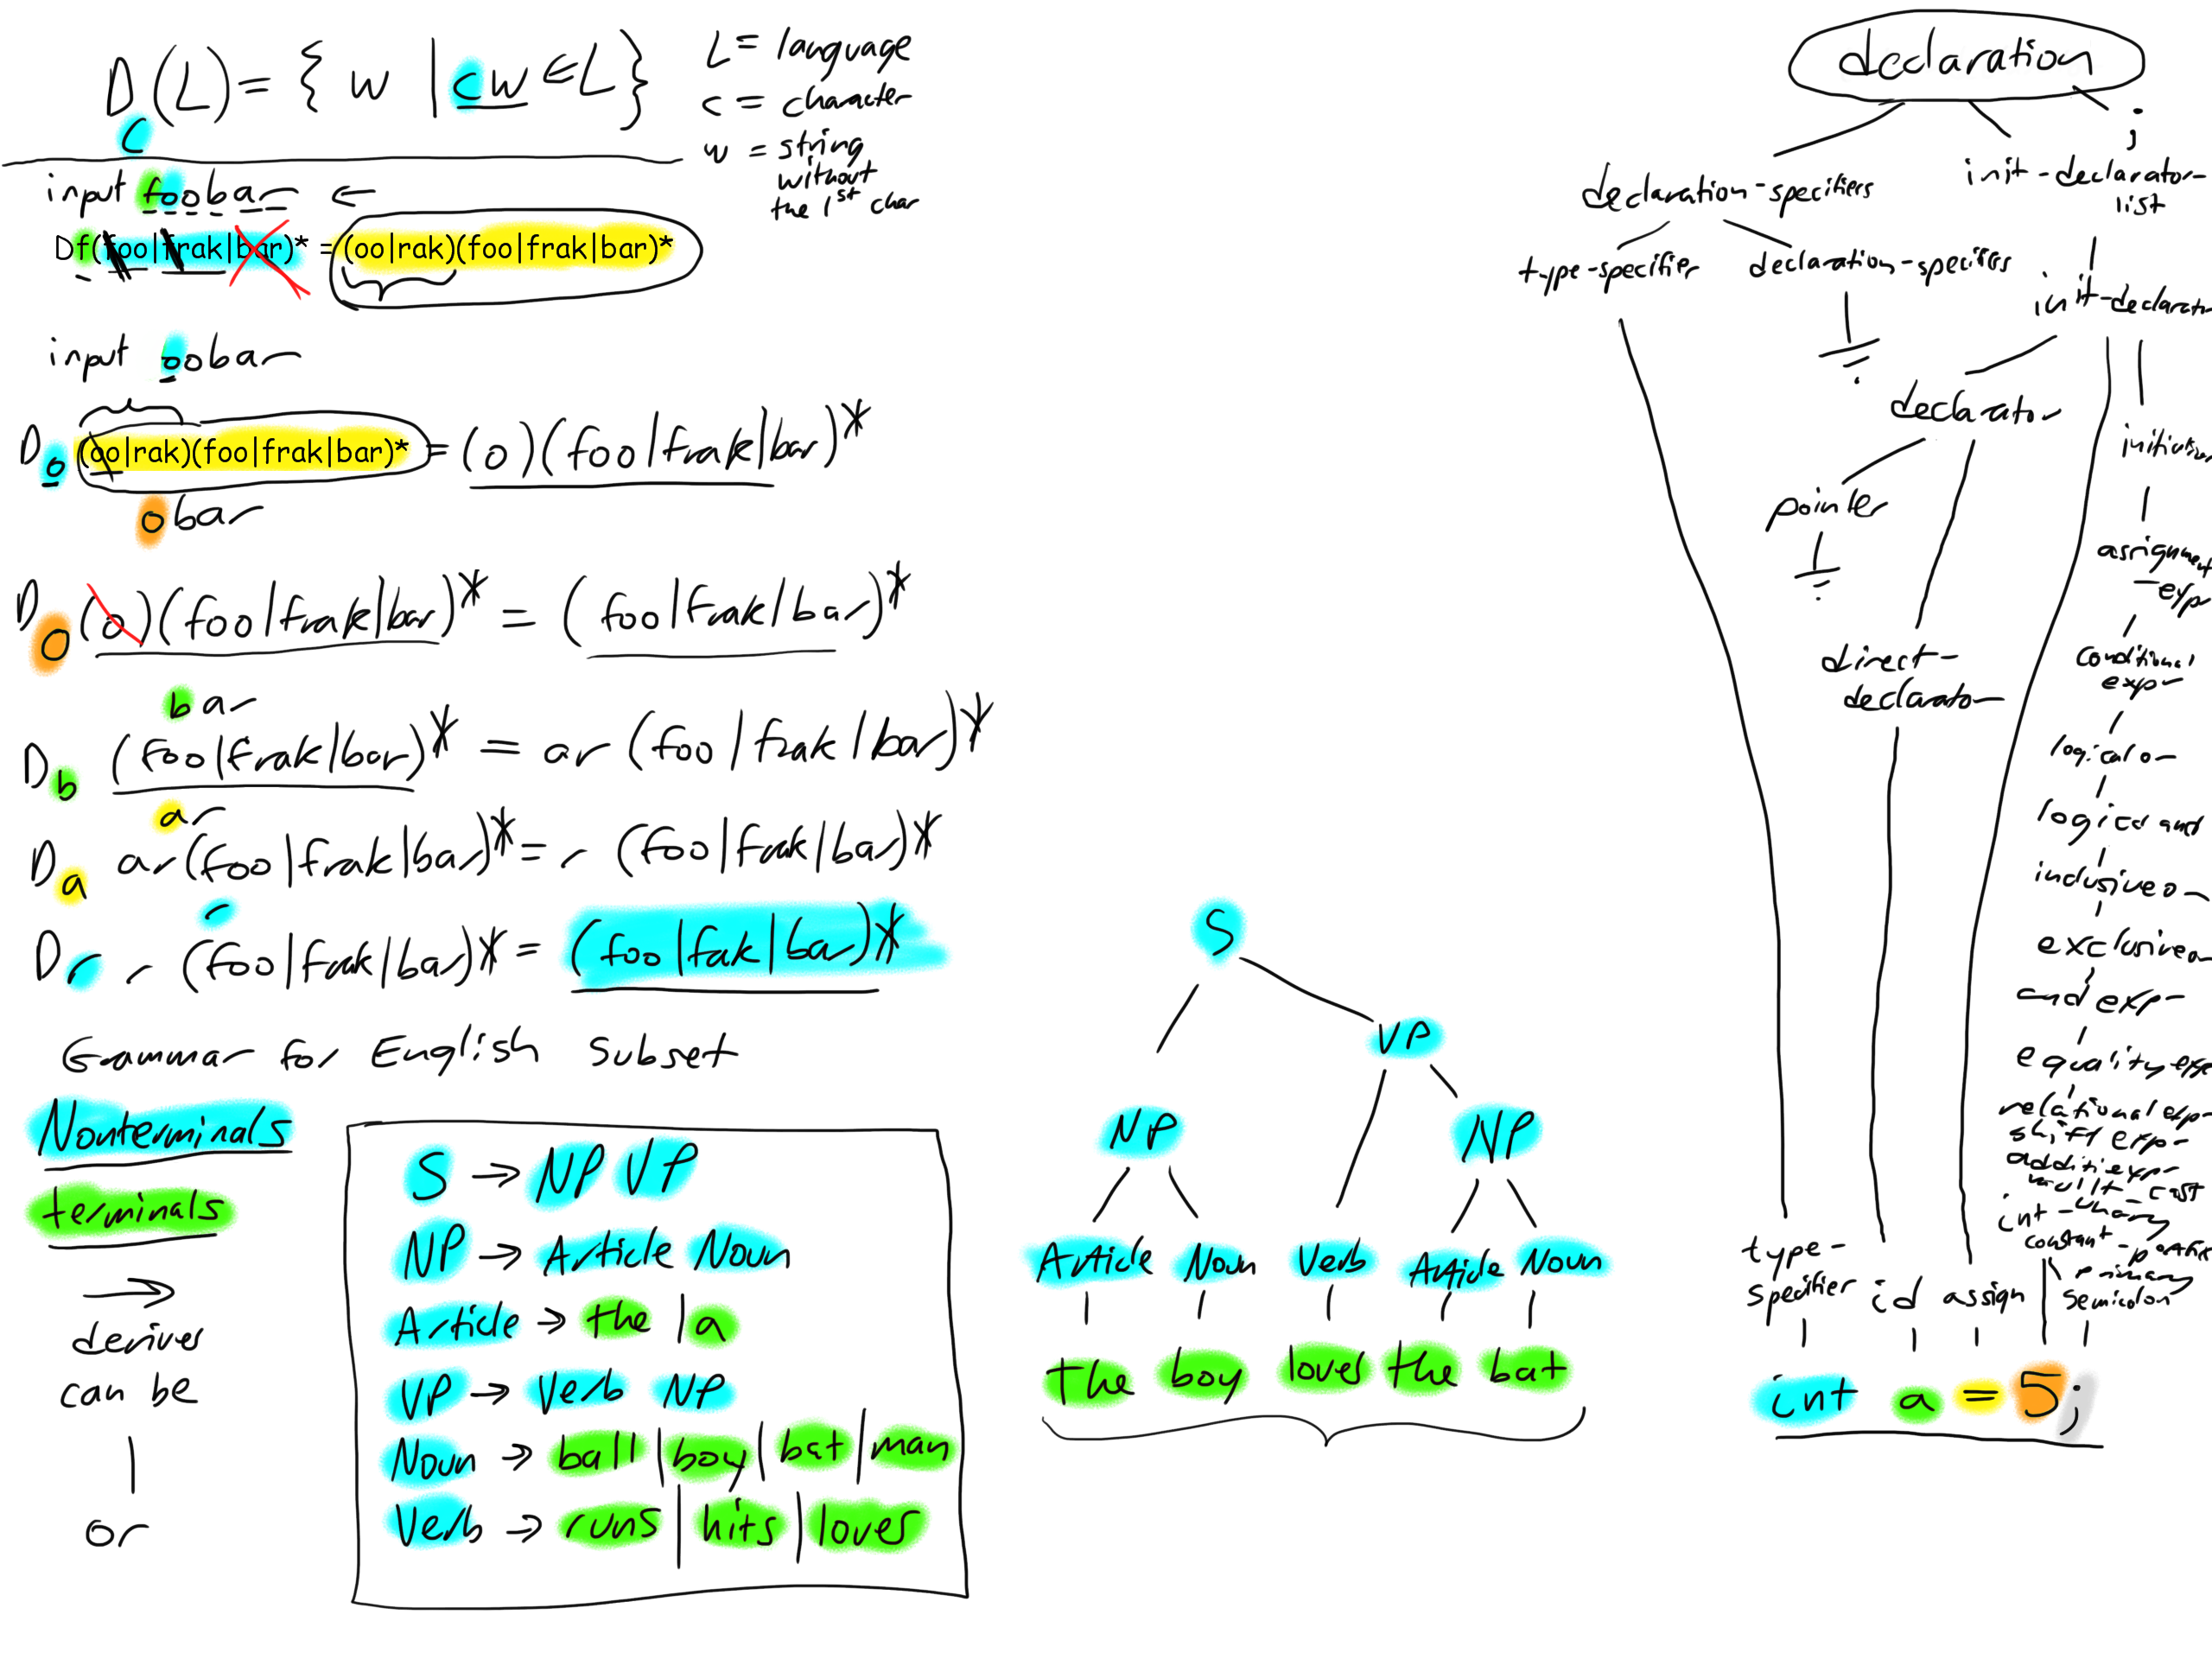 D_c(L) = { w | cw ∈ L}
L = language
c = character
w = string
without
the 1st char
input foobar ←
Df(foo|frak|bar)* = (oo|rak)(foo|frak|bar)*
input oobar
D_o (oo|rak)(foo|frak|bar)* = (o)(foo|frak|bar)*
obar
D_o (o)(foo|frak|bar)* = (foo|frak|bar)*
bar
D_b (foo|frak|bar)* = ar (foo|frak|bar)*
ar
D_a ar(foo|frak|bar)* = r (foo|frak|bar)*
r
D_r r (foo|frak|bar)* = (foo|fak|bar)*
Grammar for English Subset
Nonterminals
terminals
→
derives
can be
|
or
S → NP VP
NP → Article Noun
Article → the | a
VP → Verb NP
Noun → ball | boy | bat | man
Verb → runs | hits | loves
S
VP
NP NP
Article Noun Verb Article Noun
The boy loves the bat
declaration
;
declaration-specifiers
init-declarator-
list
type-specifier declaration-specifiers
init-declarator
declarator
pointer
assignment
-expr
direct-
declarator
conditional
expr
logical or
logical and
inclusive or
exclusive or
and expr
equality expr
relational expr
shift expr
int-
constant
unary
primary
type-
specifier id assign
semicolon
int a = 5;